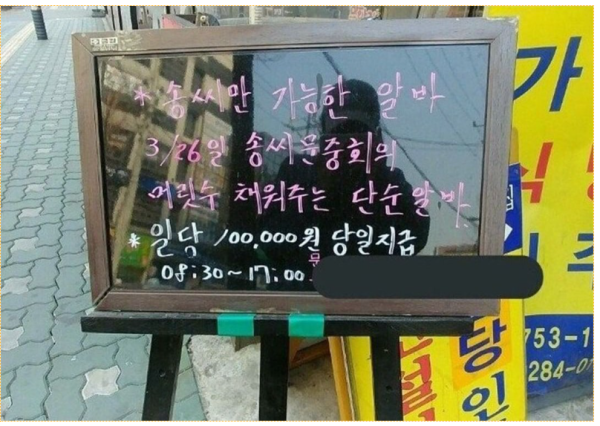 * 송씨만 가능한 알바
3/26일 송씨문중회의
머릿수 채워주는 단순알바
* 일당 100,000원 당일지급
08:30~17:00
가
식
당
인
753-1
284-0